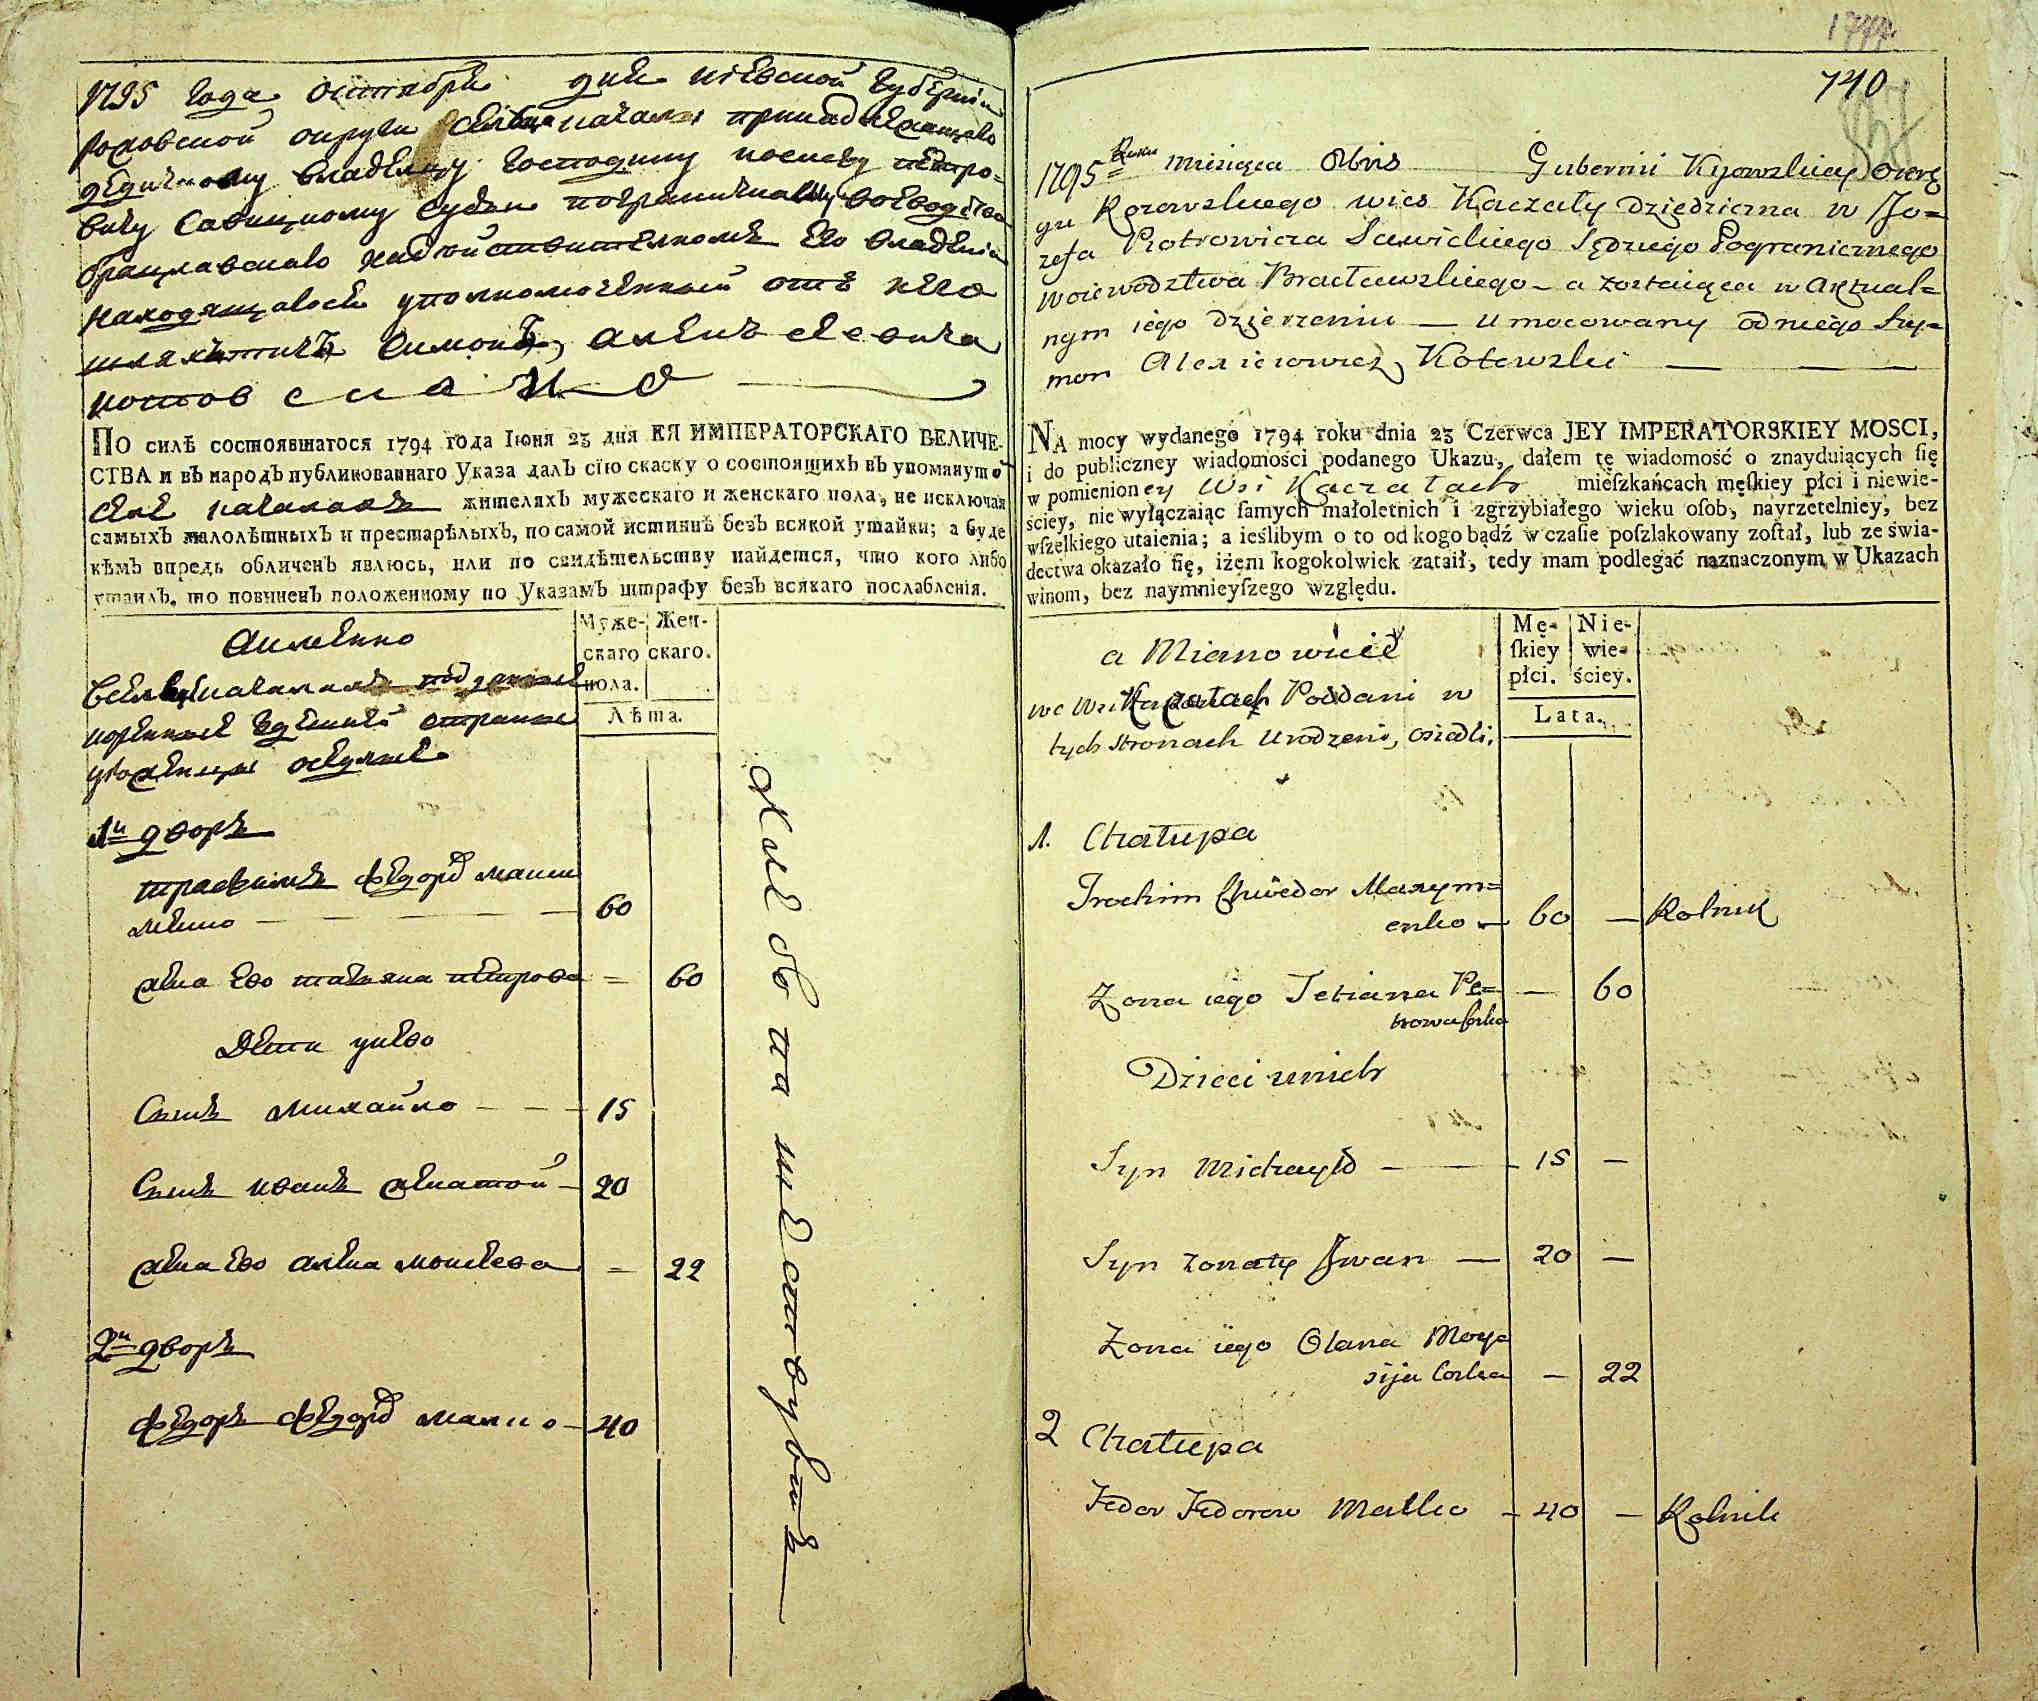 1795 года октября дня киевской губернїи
роховской округи села качалы принадлежащаго
дедичному владелцу господину иосиеву петро-
вичу Савицкому судьи пограничному воеводства
брацлавскаго надействителномъ его владенїи
находящагося уполномоченный отъ него
шляхтичъ Симонъ алексеевичъ
котовский
ПО силѣ состоявшагося 1794 года Іюня 23 дня ЕЯ ИМПЕРАТОРСКАГО ВЕЛИЧЕ-
СТВА и въ народъ публикованнаго Указа далъ сїю скаску о состоящихъ въ упомянуто
селе качалахъ жителяхъ мужескаго и женскаго пола, не исключая
самыхъ малолѣтныхъ и престарѣлыхъ, по самой истиннѣ безъ всякой утайки; а буде
кѣмъ впредь обличенъ явлюсь, или по свидѣтельству найдется, что кого либо
утаилъ, то повиненъ положенному по Указамъ штрафу безъ всякаго послабленія.
Муже- Жен-
скаго скаго.
пола.
Лѣта.
Аименно
Веле качалахъ подданые
коренные здешней страны
уроженцы оседлые
1й дворъ
трафимъ федоръ макси
менко — 60
жена его татьяна петрова = 60
Дети унего
Сынъ михайло — 15
Сынъ иванъ женатой — 20
жена его алена моисеева = 22
2й дворъ
федоръ федоръ малко — 40
740
1795 Roku Miesiąca 8bris Gubernii Kijowskiey Okrę
gu Rozowskiego wies Kaczały Dziedziczna w Jo=
zefa Piotrowicza Sawickiego Sędziego Pogranicznego
Woiewodztwa Bracławskiego – a zostaiąca w Aktual=
nym iego dzierzeniu — Umocowany od niego Szy=
mon Alexieiowicz Kotowski — — —
NA mocy wydanego 1794 roku dnia 23 Czerwca JEY IMPERATORSKIEY MOSCI,
i do publiczney wiadomości podanego Ukazu, dałem tę wiadomość o znayduiących ſię
w pomienioney Wsi Kaczałach mieſzkańcach męſkiey płci i niewie-
ściey, nie wyłączaiąc ſamych małoletnich i zgrzybiałego wieku oſob, nayrzetelniey, bez
wſzelkiego utaienia; a ieślibym o to od kogo bądź w czaſie poſzlakowany zoſtał, lub ze świa-
dectwa okazało ſię, iżem kogokolwiek zataił, tedy mam podlegać naznaczonym w Ukazach
winom, bez naymnieyſzego względu.
Mę- Nie-
ſkiey wie-
płci. ściey.
Lata.
a Mianowicie
we Wsi Kaczałach Poddani w
tych Stronach Urodzeni, osiedli.
1. Chałupa
Trochim Chwedor Maxym=
enko — 60 — Rolnik
Zona iego Tetiana Pe= — 60
trowa Corka
Dzieci u nich
Syn Michayło — 15 —
Syn zonaty Jwan — 20 —
Zona iego Olana Moyse
sija Corka — 22
2 Chałupa
Fedor Fedorow Malko — 40 — Rolnik